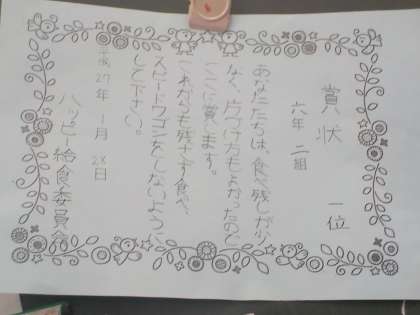 賞状
一位
六年 二組
あなたたちは、食べ残しが少
なく、片づけ方もよかったので
ここに賞します。
これからも残さず食べ、
スピードワゴンをしないように
して下さい。
27年 1月 28日
ハッピー給食委員会